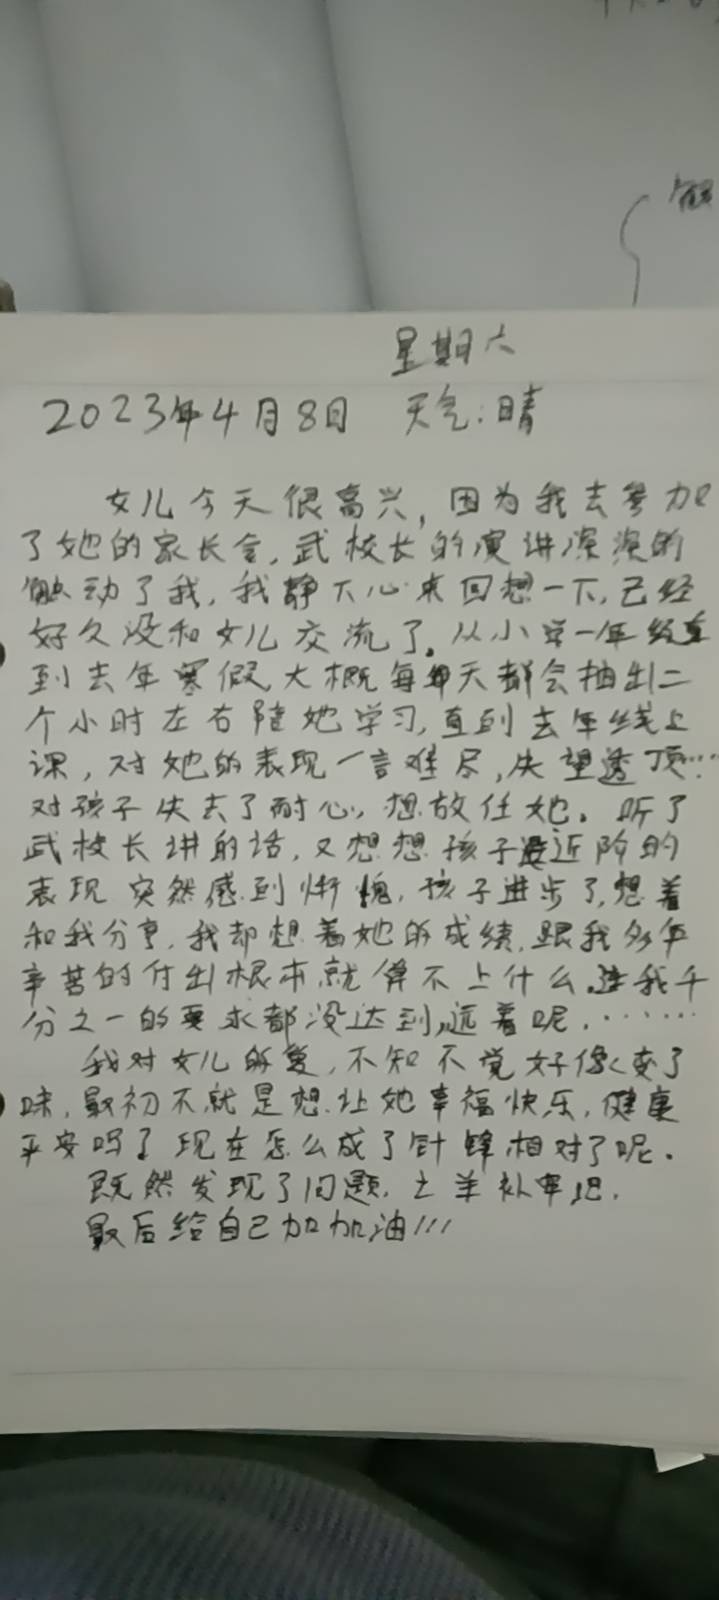 星期六
2023年4月8日 天气:晴
女儿今天很高兴,因为我去参加
了她的家长会,武校长的演讲深深的
触动了我,我静下心来回想一下,已经
好久没和女儿交流了。从小学一年级
到去年寒假大概每天都会抽出二
个小时左右陪她学习,直到去年线上
课,对她的表现一言难尽,失望透顶……
对孩子失去了耐心,想放任她。听了
武校长讲的话,又想想孩子最近阶的
表现 突然感到惭愧,孩子进步了,想着
和我分享,我却想着她的成绩,跟我多年
辛苦的付出根本就算不上什么,连我千
分之一的要求都没达到,远着呢,……
我对女儿的爱,不知不觉好像变了
味,最初不就是想让她幸福快乐,健康
平安吗?现在怎么成了针锋相对了呢。
既然发现了问题,亡羊补牢吧,
最后给自己加加油!!!